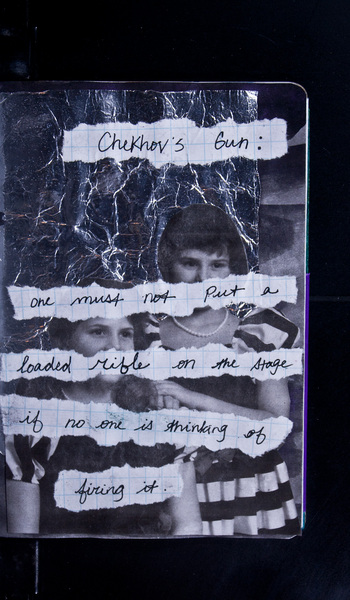 Chekhov's Gun:
one must not put a
loaded rifle on the stage
if no one is thinking of
firing it.